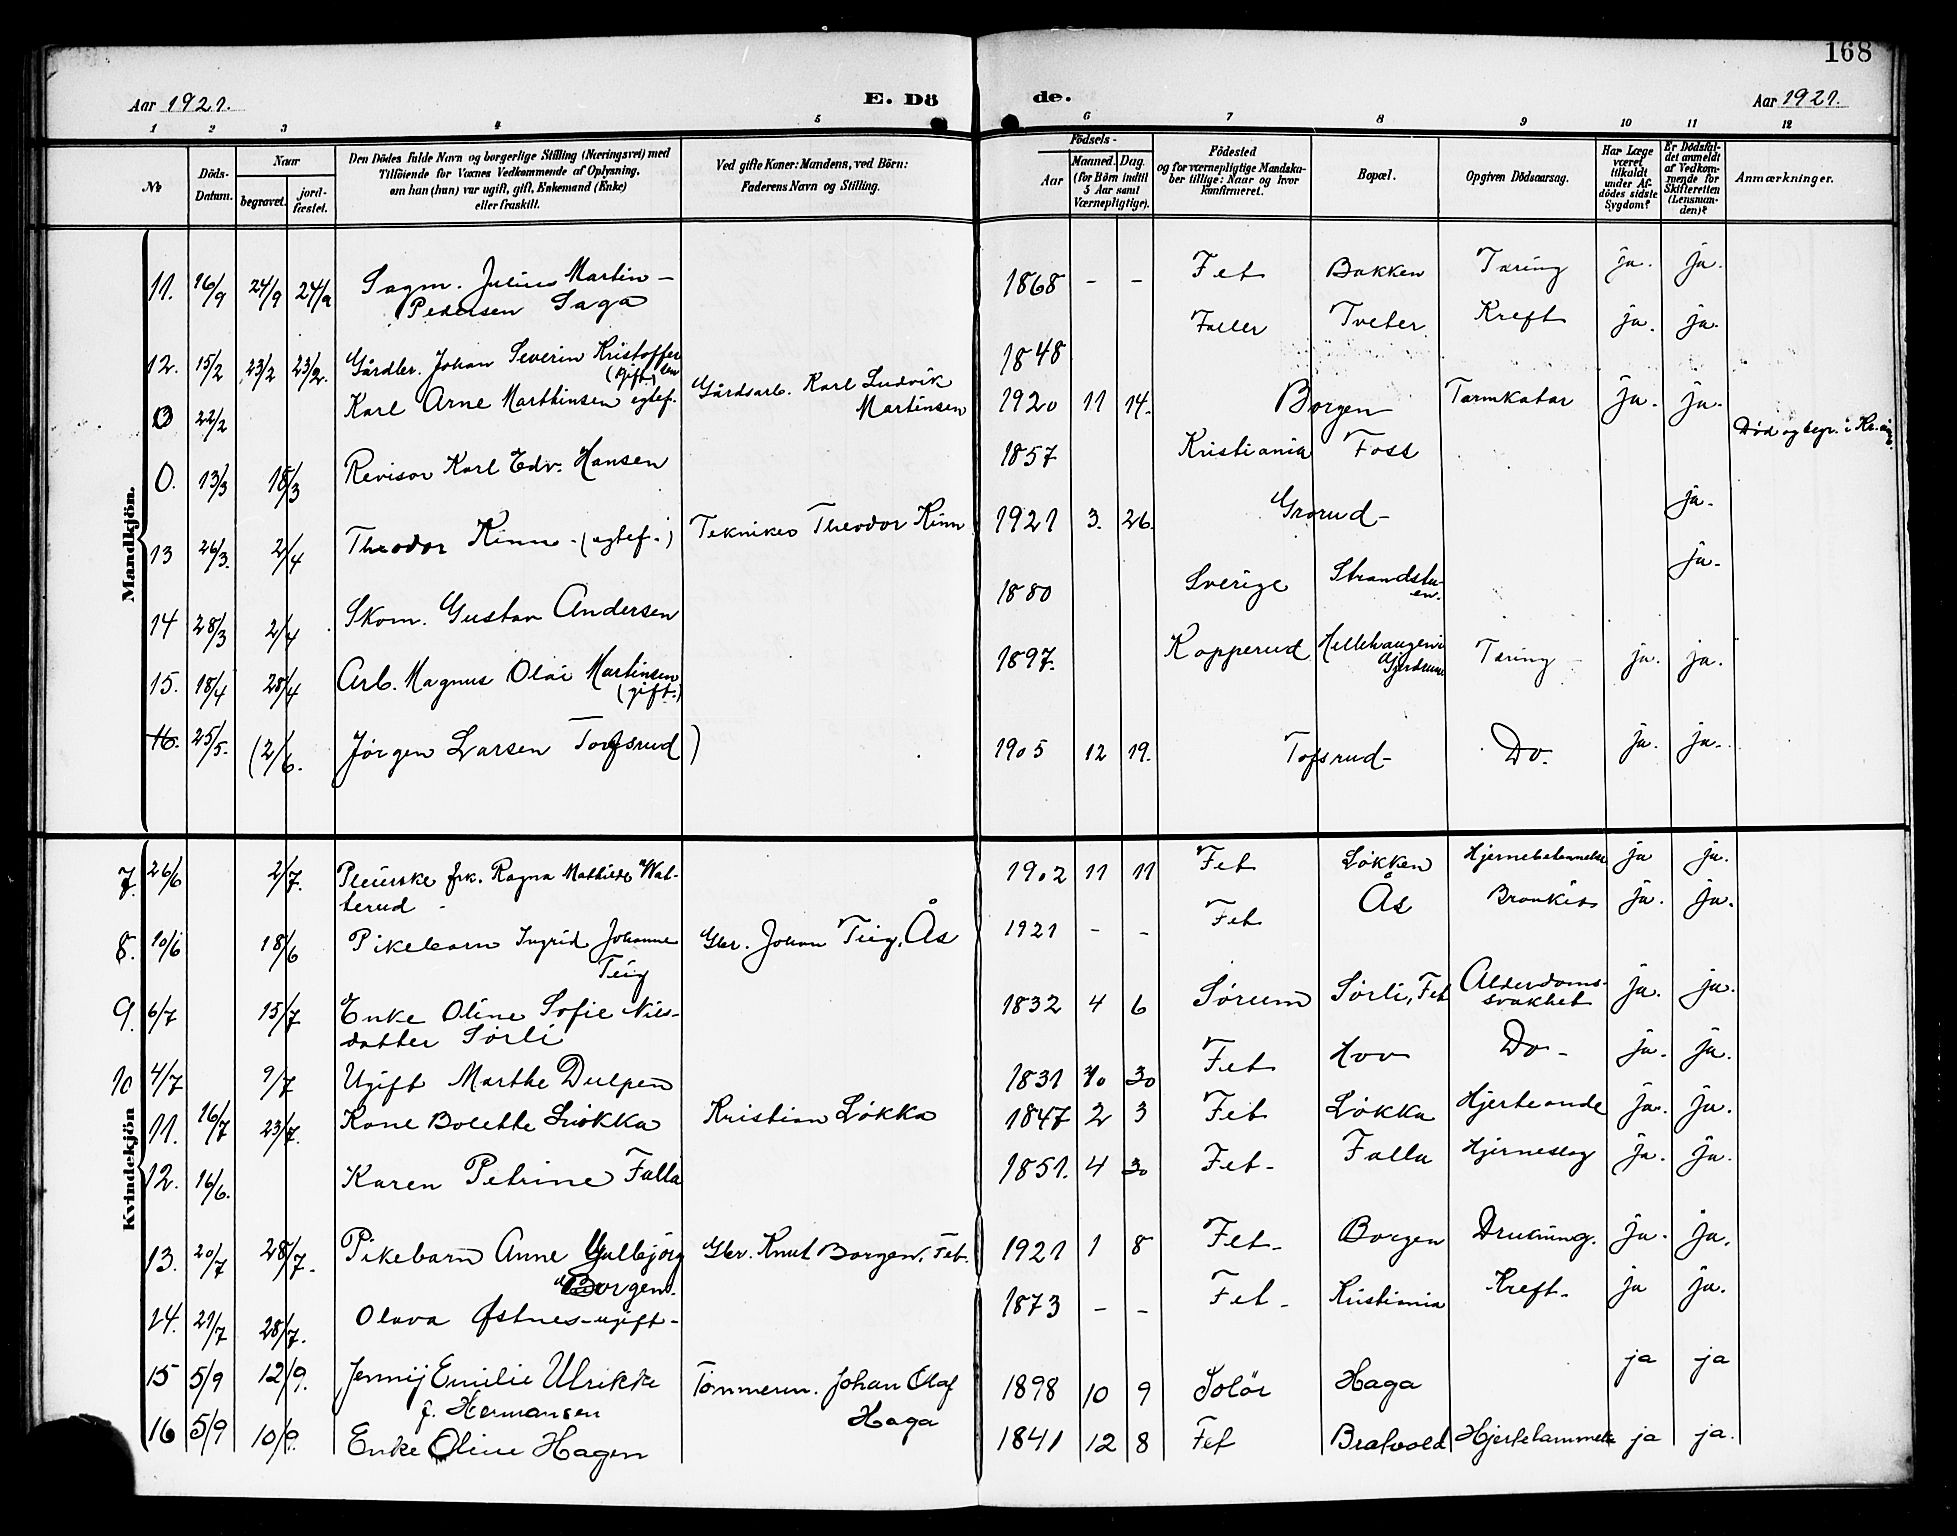 168
Aar 1921. E. Dö de. Aar 1921.
1 2 3 4 5 6 7 8 9 10 11 12
No Döds-Datum. Naar begravet. jordfæstet.
Den Dödes fulde Navn og borgerlige Stilling (Næringsvei) med
Tilföiende for Voxnes Vedkommende af Oplysning,
om han (hun) var ugift, gift, Enkemand (Enke)
eller fraskilt.
Ved gifte Koner: Mandens, ved Börn:
Faderens Navn og Stilling.
Födsels-
Aar Maaned. Dag.
(for Börn indtil
5 Aar samt
Værnepligtige).
Födested
og for værnepligtige Mandska-
ber tillige: Naar og hvor
konfirmeret.
Bopæl.
Opgiven Dödsaarsag.
Har Læge
været
tilkaldt
under Af-
dödes sidste
Sygdom?
Er Dödsfal-
det anmeldt
af Vedkom-
mende for
Skifteretten
(Lensman-
den)?
Anmærkninger.
Mandkjön.
11. 16/9 24/9 24/9 Sagm. Julius Martin - 1868 - - Fet Bakken Tæring ja. ja.
Pedersen Saga
12. 15/2 23/2 23/2. Gårdbr. Johan Severin Kristoffer 1848 Faller Tveter Kreft ja. ja.
sen
(gift.)
0 22/2 Karl Arne Marthinsen egtef. Gårdsarb. Karl Ludvik 1920 11 14. Borgen Tarmkatar ja. ja.
Martinsen
0. 13/3 18/3 Revisor Karl Edv. Hansen 1857 Kristiania Foss Död og begr. i Kr.
13 26/3. 2/4 Theodor Kinn - (egtef.) Tekniker Theodor Kinn 1921 3. 26. Grorud - ja.
14 28/3 2/4 Skom. Gustav Andersen 1880 Sverige Strandstu-
en. ja.
15. 18/4 28/4 Arb. Magnus Olai Martinsen 1897. Kopperud Tæring - ja. ja.
(gift.)
16. 25/5. (2/6. Jörgen Larsen Tofsrud) 1905 12 19. Tofsrud - Do. ja. ja.
Kvindekjön
7. 26/6 2/7. Pleierske frk. Ragna Mathilde Wal- 1902 11 11 Fet Løkken Hjernebetennelse ja ja.
terud -
8. 10/6 18/6 Pikebarn Ingrid Johanne Gbr. Johan Teig, Ås 1921 - - Fet Ås Bronkits ja. ja.
Teig
9. 6/7 15/7 Enke Oline Sofie Nils- 1832 4 6 Sørum Sørli, Fet Alderdoms- ja. ja.
datter Sørli svakhet
10 4/7 9/7 Ugift Marthe Dulpen 1831 10 30 Fet Hov Do - ja. ja.
11. 16/7 23/7. Kone Bolette Løkka Kristian Løkka 1847 2 3 Fet Løkka Hjerteonde ja. ja.
12. 16/6. Karen Petrine Falla 1851. 4 30 Fet - Falla Hjerneslag ja. ja.
13. 20/7 28/7. Pikebarn Anne Gulbjörg Gbr. Knut Borgen, Fet. 1921 1 8 Fet - Borgen Drukning. ja. ja.
Borgen.
14. 21/7 28/7. Olava Østnes - ugift - 1873 - - Fet - Kristiania Kreft - ja ja.
15 5/9 12/9. Jennij Emilie Ulrikke Tömmerm. Johan Olaf 1898 10 9 Solör Haga ja ja
f. Hermansen Haga
16 5/9 10/9. Enke Oline Hagen 1841 12 8 Fet Bratvold ja ja.